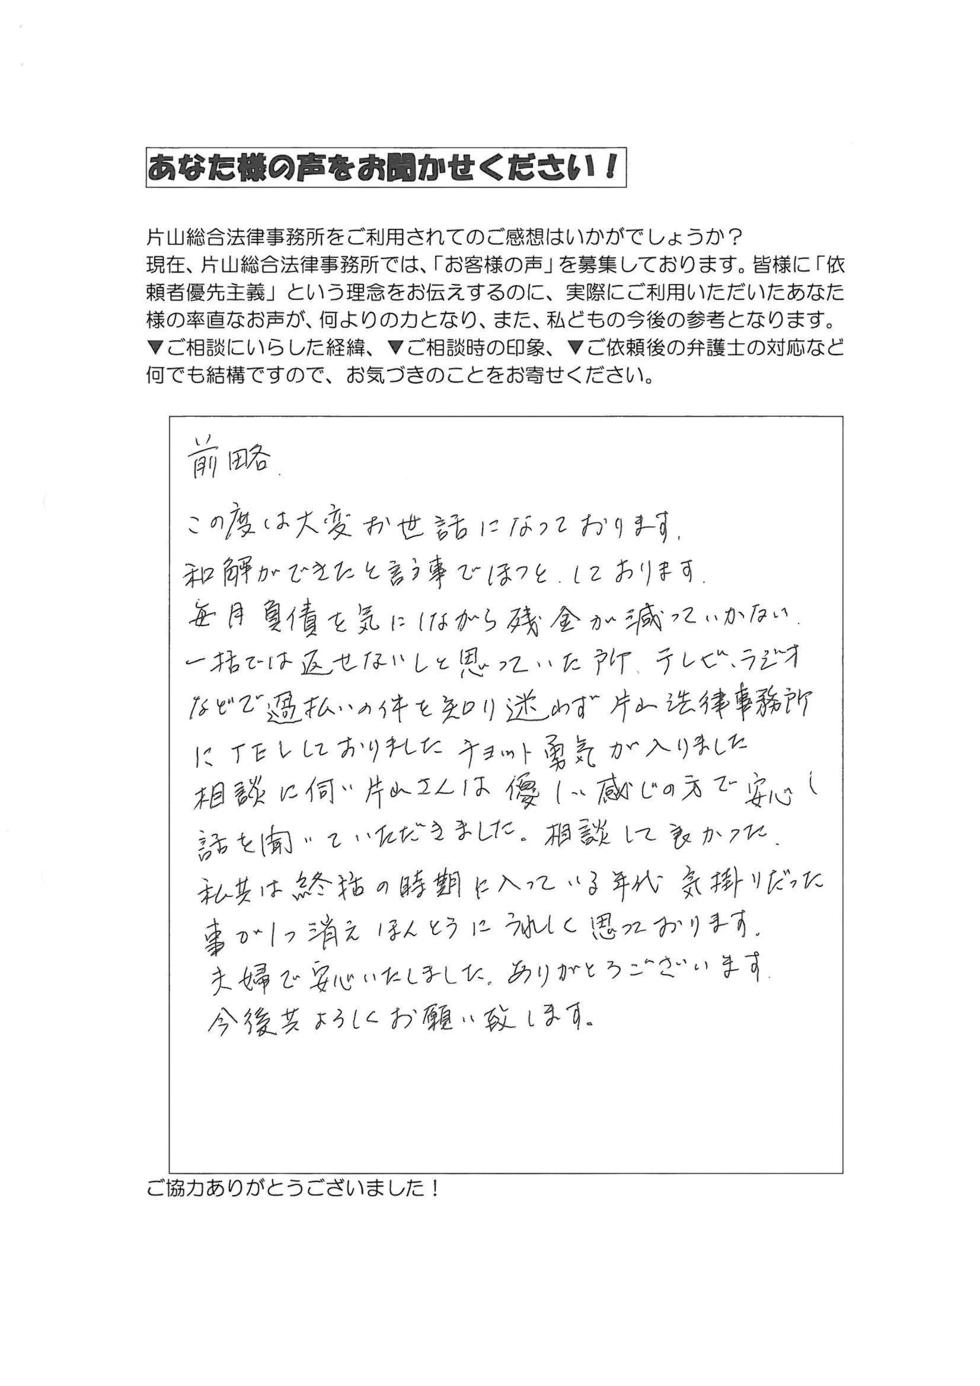 あなた様の声をお聞かせください！
片山総合法律事務所をご利用されてのご感想はいかがでしょうか？
現在、片山総合法律事務所では、「お客様の声」を募集しております。皆様に「依
頼者優先主義」という理念をお伝えするのに、実際にご利用いただいたあなた
様の率直なお声が、何よりの力となり、また、私どもの今後の参考となります。
▼ご相談にいらした経緯、▼ご相談時の印象、▼ご依頼後の弁護士の対応など
何でも結構ですので、お気づきのことをお寄せください。
前略.
この度は大変お世話になっております.
和解ができたと言う事でほっと.しております.
毎月負債を気にしながら残金が減っていかない.
一括では返せないしと思っていた所.テレビ、ラジオ
などで過払いの件を知り迷わず片山法律事務所
にTELしておりました チョット勇気が入りました
相談に伺い片山さんは優しい感じの方で安心し
話を聞いていただきました。相談して良かった.
私共は終括の時期に入っている年代 気掛りだった
事が1つ消えほんとうにうれしく思っております.
夫婦で安心いたしました。ありがとうございます.
今後共よろしくお願い致します。
ご協力ありがとうございました！